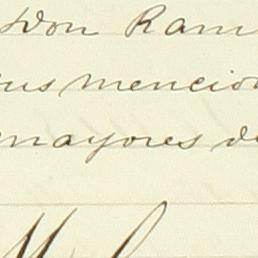 Don Ram
us mencio
mayores d